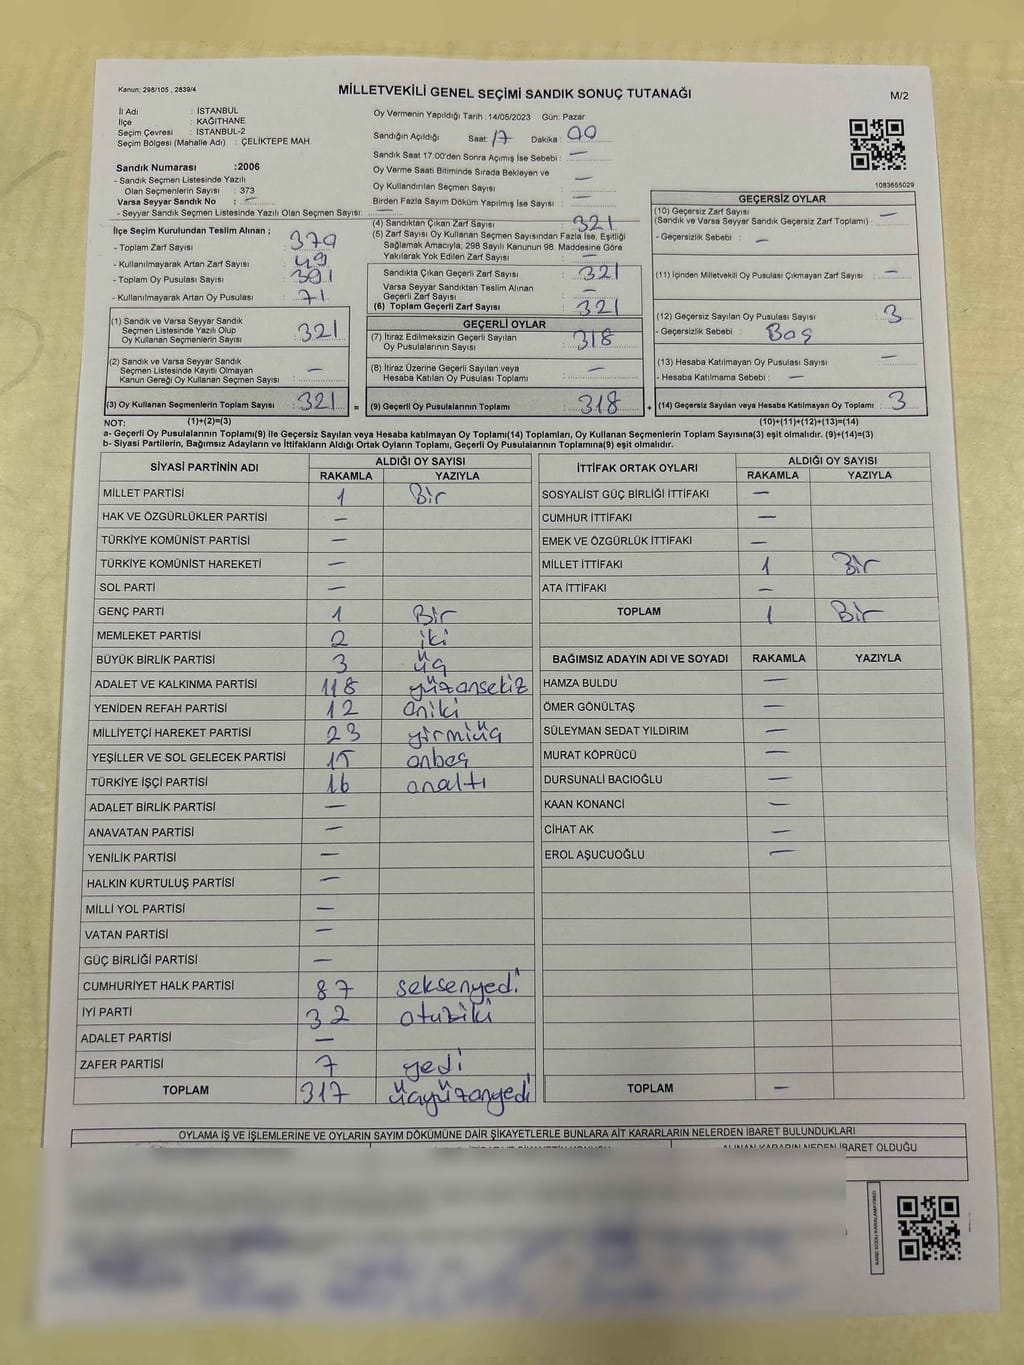 Kanun; 298/105 , 2839/4
MİLLETVEKİLİ GENEL SEÇİMİ SANDIK SONUÇ TUTANAĞI
M/2
İl Adı : İSTANBUL
İlçe : KAĞITHANE
Seçim Çevresi : İSTANBUL-2
Seçim Bölgesi (Mahalle Adı) : ÇELİKTEPE MAH.
Sandık Numarası :2006
- Sandık Seçmen Listesinde Yazılı
Olan Seçmenlerin Sayısı : 373
Varsa Seyyar Sandık No : —
- Seyyar Sandık Seçmen Listesinde Yazılı Olan Seçmen Sayısı: —
Oy Vermenin Yapıldığı Tarih : 14/05/2023 Gün: Pazar
Sandığın Açıldığı Saat: 17 Dakika : 00
Sandık Saat 17:00'den Sonra Açımış İse Sebebi : —
Oy Verme Saati Bitiminde Sırada Bekleyen ve
Oy Kullandırılan Seçmen Sayısı : —
Birden Fazla Sayım Döküm Yapılmış İse Sayısı : —
1083655029
İlçe Seçim Kurulundan Teslim Alınan ;
- Toplam Zarf Sayısı : 379
- Kullanılmayarak Artan Zarf Sayısı : 49
- Toplam Oy Pusulası : 391
- Kullanılmayarak Artan Oy Pusulası : 71
(1) Sandık ve Varsa Seyyar Sandık
Seçmen Listesinde Yazılı Olup
Oy Kullanan Seçmenlerin Sayısı : 321
(2) Sandık ve Varsa Seyyar Sandık
Seçmen Listesinde Kayıtlı Olmayan
Kanun Gereği Oy Kullanan Seçmen Sayısı : —
(3) Oy Kullanan Seçmenlerin Toplam Sayısı : 321 =
(4) Sandıktan Çıkan Zarf Sayısı : 321
(5) Zarf Sayısı Oy Kullanan Seçmen Sayısından Fazla İse, Eşitliği
Sağlamak Amacıyla; 298 Sayılı Kanunun 98. Maddesine Göre
Yakılarak Yok Edilen Zarf Sayısı : —
Sandıkta Çıkan Geçerli Zarf Sayısı : 321
Varsa Seyyar Sandıktan Teslim Alınan
Geçerli Zarf Sayısı : —
(6) Toplam Geçerli Zarf Sayısı : 321
GEÇERLİ OYLAR
(7) İtiraz Edilmeksizin Geçerli Sayılan
Oy Pusulalarının Sayısı : 318
(8) İtiraz Üzerine Geçerli Sayılan veya
Hesaba Katılan Oy Pusulası Toplamı : —
(9) Geçerli Oy Pusulalarının Toplamı : 318 +
GEÇERSİZ OYLAR
(10) Geçersiz Zarf Sayısı
(Sandık ve Varsa Seyyar Sandık Geçersiz Zarf Toplamı) : —
- Geçersizlik Sebebi : —
(11) İçinden Milletvekili Oy Pusulası Çıkmayan Zarf Sayısı : —
(12) Geçersiz Sayılan Oy Pusulası Sayısı : 3
- Geçersizlik Sebebi : Boş
(13) Hesaba Katılmayan Oy Pusulası Sayısı : —
- Hesaba Katılmama Sebebi : —
(14) Geçersiz Sayılan veya Hesaba Katılmayan Oy Toplamı : 3
NOT: (1)+(2)=(3) (10)+(11)+(12)+(13)=(14)
a- Geçerli Oy Pusulalarının Toplamı(9) ile Geçersiz Sayılan veya Hesaba katılmayan Oy Toplamı(14) Toplamları, Oy Kullanan Seçmenlerin Toplam Sayısına(3) eşit olmalıdır. (9)+(14)=(3)
b- Siyasi Partilerin, Bağımsız Adayların ve İttifakların Aldığı Ortak Oyların Toplamı, Geçerli Oy Pusulalarının Toplamına(9) eşit olmalıdır.
SİYASİ PARTİNİN ADI ALDIĞI OY SAYISI
RAKAMLA YAZIYLA
MİLLET PARTİSİ 1 Bir
HAK VE ÖZGÜRLÜKLER PARTİSİ —
TÜRKİYE KOMÜNİST PARTİSİ —
TÜRKİYE KOMÜNİST HAREKETİ —
SOL PARTİ —
GENÇ PARTİ 1 Bir
MEMLEKET PARTİSİ 2 iki
BÜYÜK BİRLİK PARTİSİ 3 üç
ADALET VE KALKINMA PARTİSİ 118 yüzonsekiz
YENİDEN REFAH PARTİSİ 12 oniki
MİLLİYETÇİ HAREKET PARTİSİ 23 yirmiüç
YEŞİLLER VE SOL GELECEK PARTİSİ 15 onbeş
TÜRKİYE İŞÇİ PARTİSİ 16 onaltı
ADALET BİRLİK PARTİSİ —
ANAVATAN PARTİSİ —
YENİLİK PARTİSİ —
HALKIN KURTULUŞ PARTİSİ —
MİLLİ YOL PARTİSİ —
VATAN PARTİSİ —
GÜÇ BİRLİĞİ PARTİSİ —
CUMHURİYET HALK PARTİSİ 87 seksenyedi
İYİ PARTİ 32 otuziki
ADALET PARTİSİ —
ZAFER PARTİSİ 7 yedi
TOPLAM 317 üçyüzonyedi
İTTİFAK ORTAK OYLARI ALDIĞI OY SAYISI
RAKAMLA YAZIYLA
SOSYALİST GÜÇ BİRLİĞİ İTTİFAKI —
CUMHUR İTTİFAKI —
EMEK VE ÖZGÜRLÜK İTTİFAKI —
MİLLET İTTİFAKI 1 Bir
ATA İTTİFAKI —
TOPLAM 1 Bir
BAĞIMSIZ ADAYIN ADI VE SOYADI RAKAMLA YAZIYLA
HAMZA BULDU —
ÖMER GÖNÜLTAŞ —
SÜLEYMAN SEDAT YILDIRIM —
MURAT KÖPRÜCÜ —
DURSUNALİ BACIOĞLU —
KAAN KONANCİ —
CİHAT AK —
EROL AŞUCUOĞLU —
TOPLAM —
OYLAMA İŞ VE İŞLEMLERİNE VE OYLARIN SAYIM DÖKÜMÜNE DAİR ŞİKAYETLERLE BUNLARA AİT KARARLARIN NELERDEN İBARET BULUNDUKLARI
ALINAN KARARIN NEDEN İBARET OLDUĞU